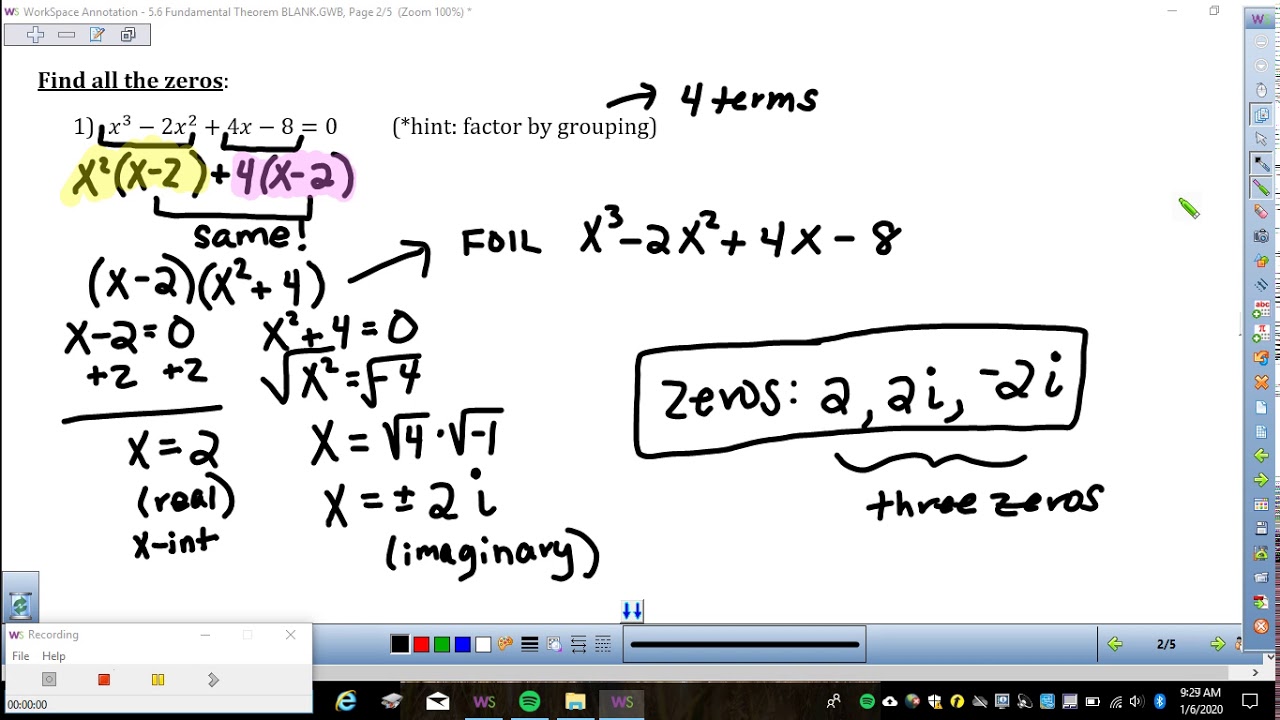 WS WorkSpace Annotation - 5.6 Fundamental Theorem BLANK.GWB, Page 2/5 (Zoom 100%) *
WS
Find all the zeros:
→ 4 terms
1) x³ − 2x² + 4x − 8 = 0 (*hint: factor by grouping)
x²(x-2) + 4(x-2)
same!
FOIL x³ - 2x² + 4x - 8
(x-2)(x² + 4)
x-2=0 x²+4=0
+2 +2 √x² = √-4
zeros: 2, 2i, -2i
x = 2 x = √4 · √-1
(real) x = ± 2i
three zeros
x-int (imaginary)
WS Recording
File Help
00:00:00
2/5
abc
π
WS
WS
9:29 AM
1/6/2020